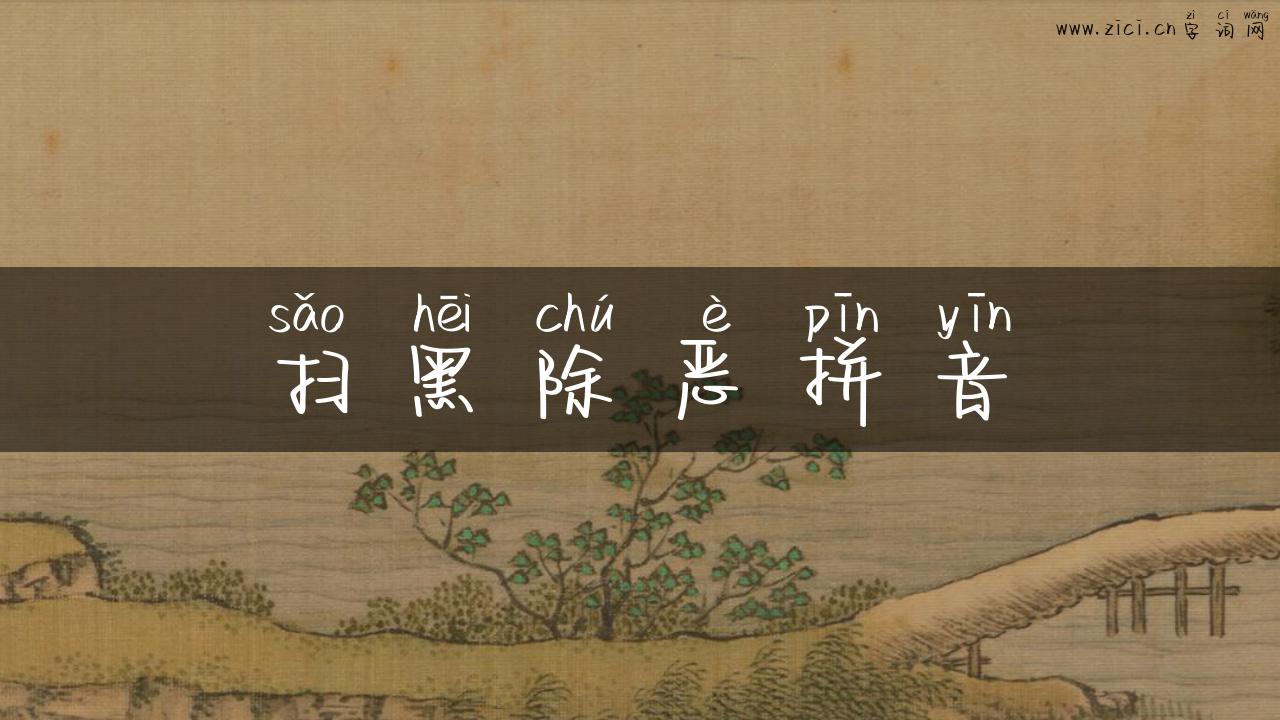 zì cí wǎng
www.zici.cn 字词网
sǎo hēi chú è pīn yīn
扫黑除恶拼音